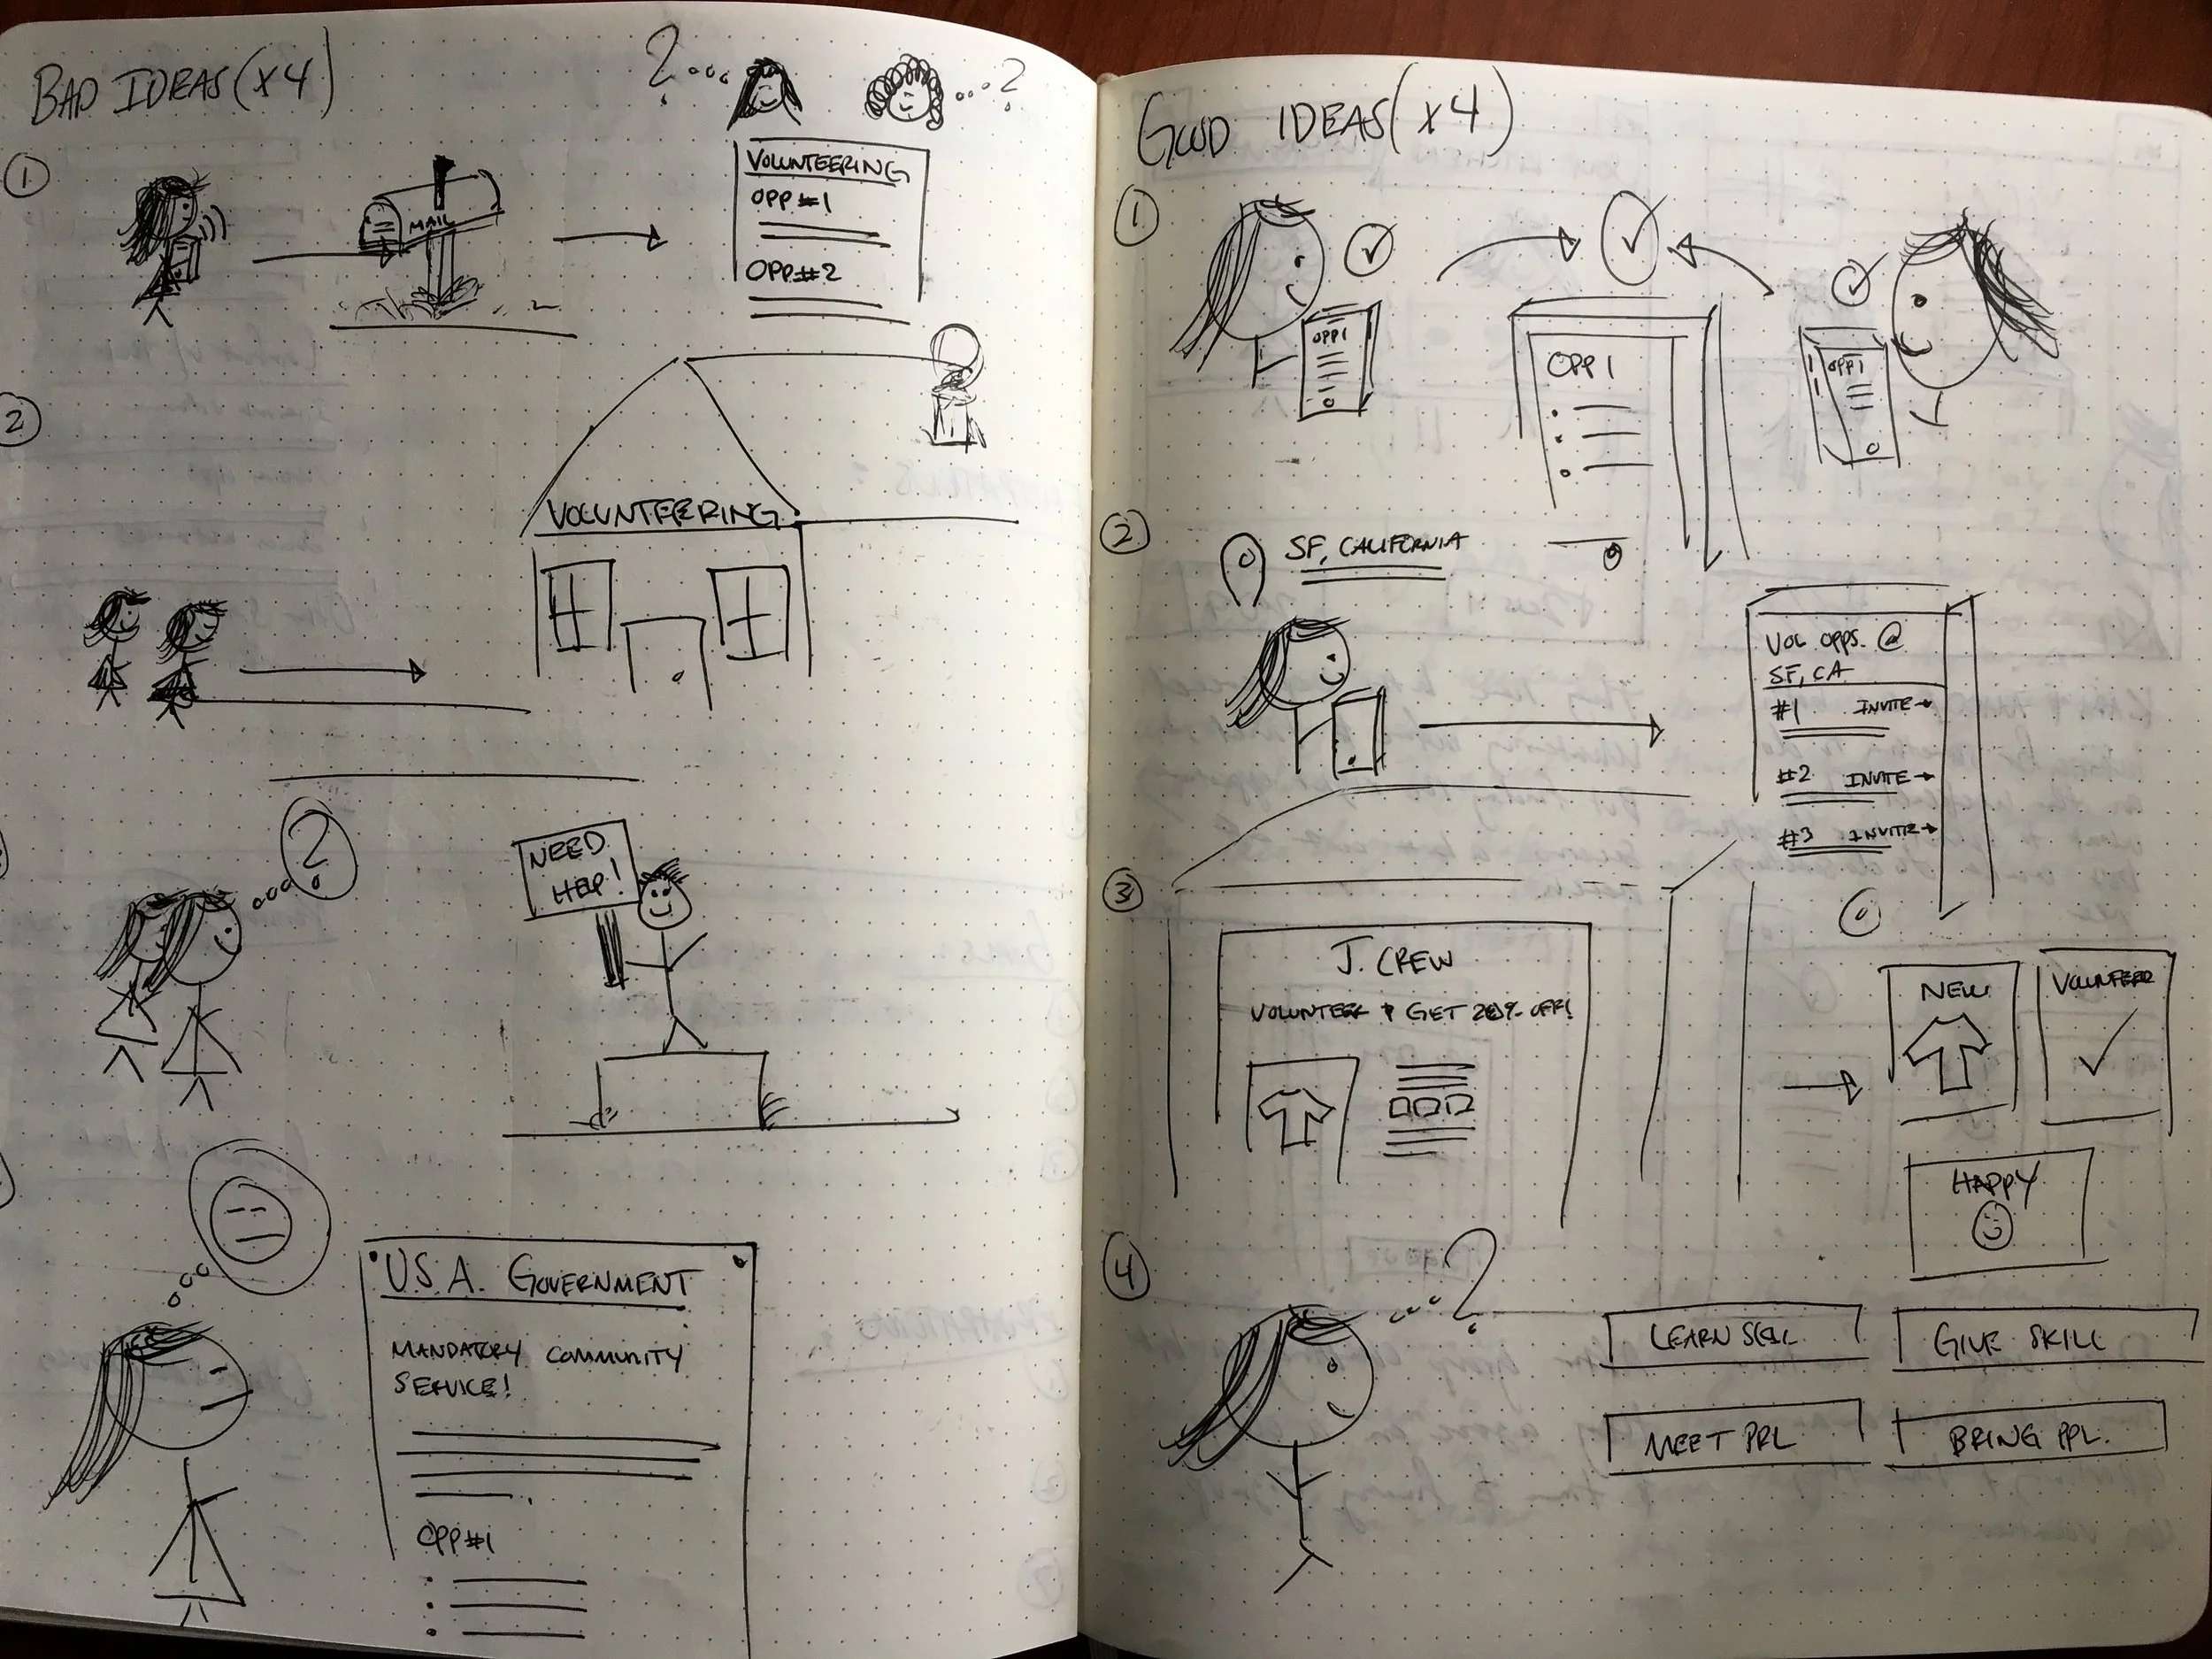 BAD IDEAS (x4)
?
?
1
MAIL
VOLUNTEERING
OPP #1
OPP #2
2
VOLUNTEERING
?
NEED
HELP!
U.S.A. GOVERNMENT
MANDATORY COMMUNITY
SERVICE!
OPP #1
GOOD IDEAS (x4)
1
OPP 1
OPP 1
OPP 1
2
SF, CALIFORNIA
VOL OPPS. @
SF, CA
#1 INVITE →
#2 INVITE →
#3 INVITE →
3
J. CREW
VOLUNTEER & GET 20% OFF!
NEW
VOLUNTEER
HAPPY
4
?
LEARN SKILL
GIVE SKILL
MEET PPL
BRING PPL.